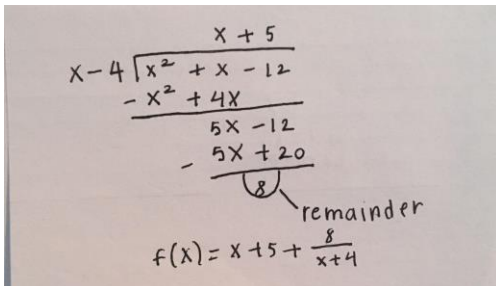 x + 5
x - 4 x² + x - 12
- x² + 4x
5x - 12
- 5x + 20
8
remainder
f(x) = x + 5 + 8/x+4